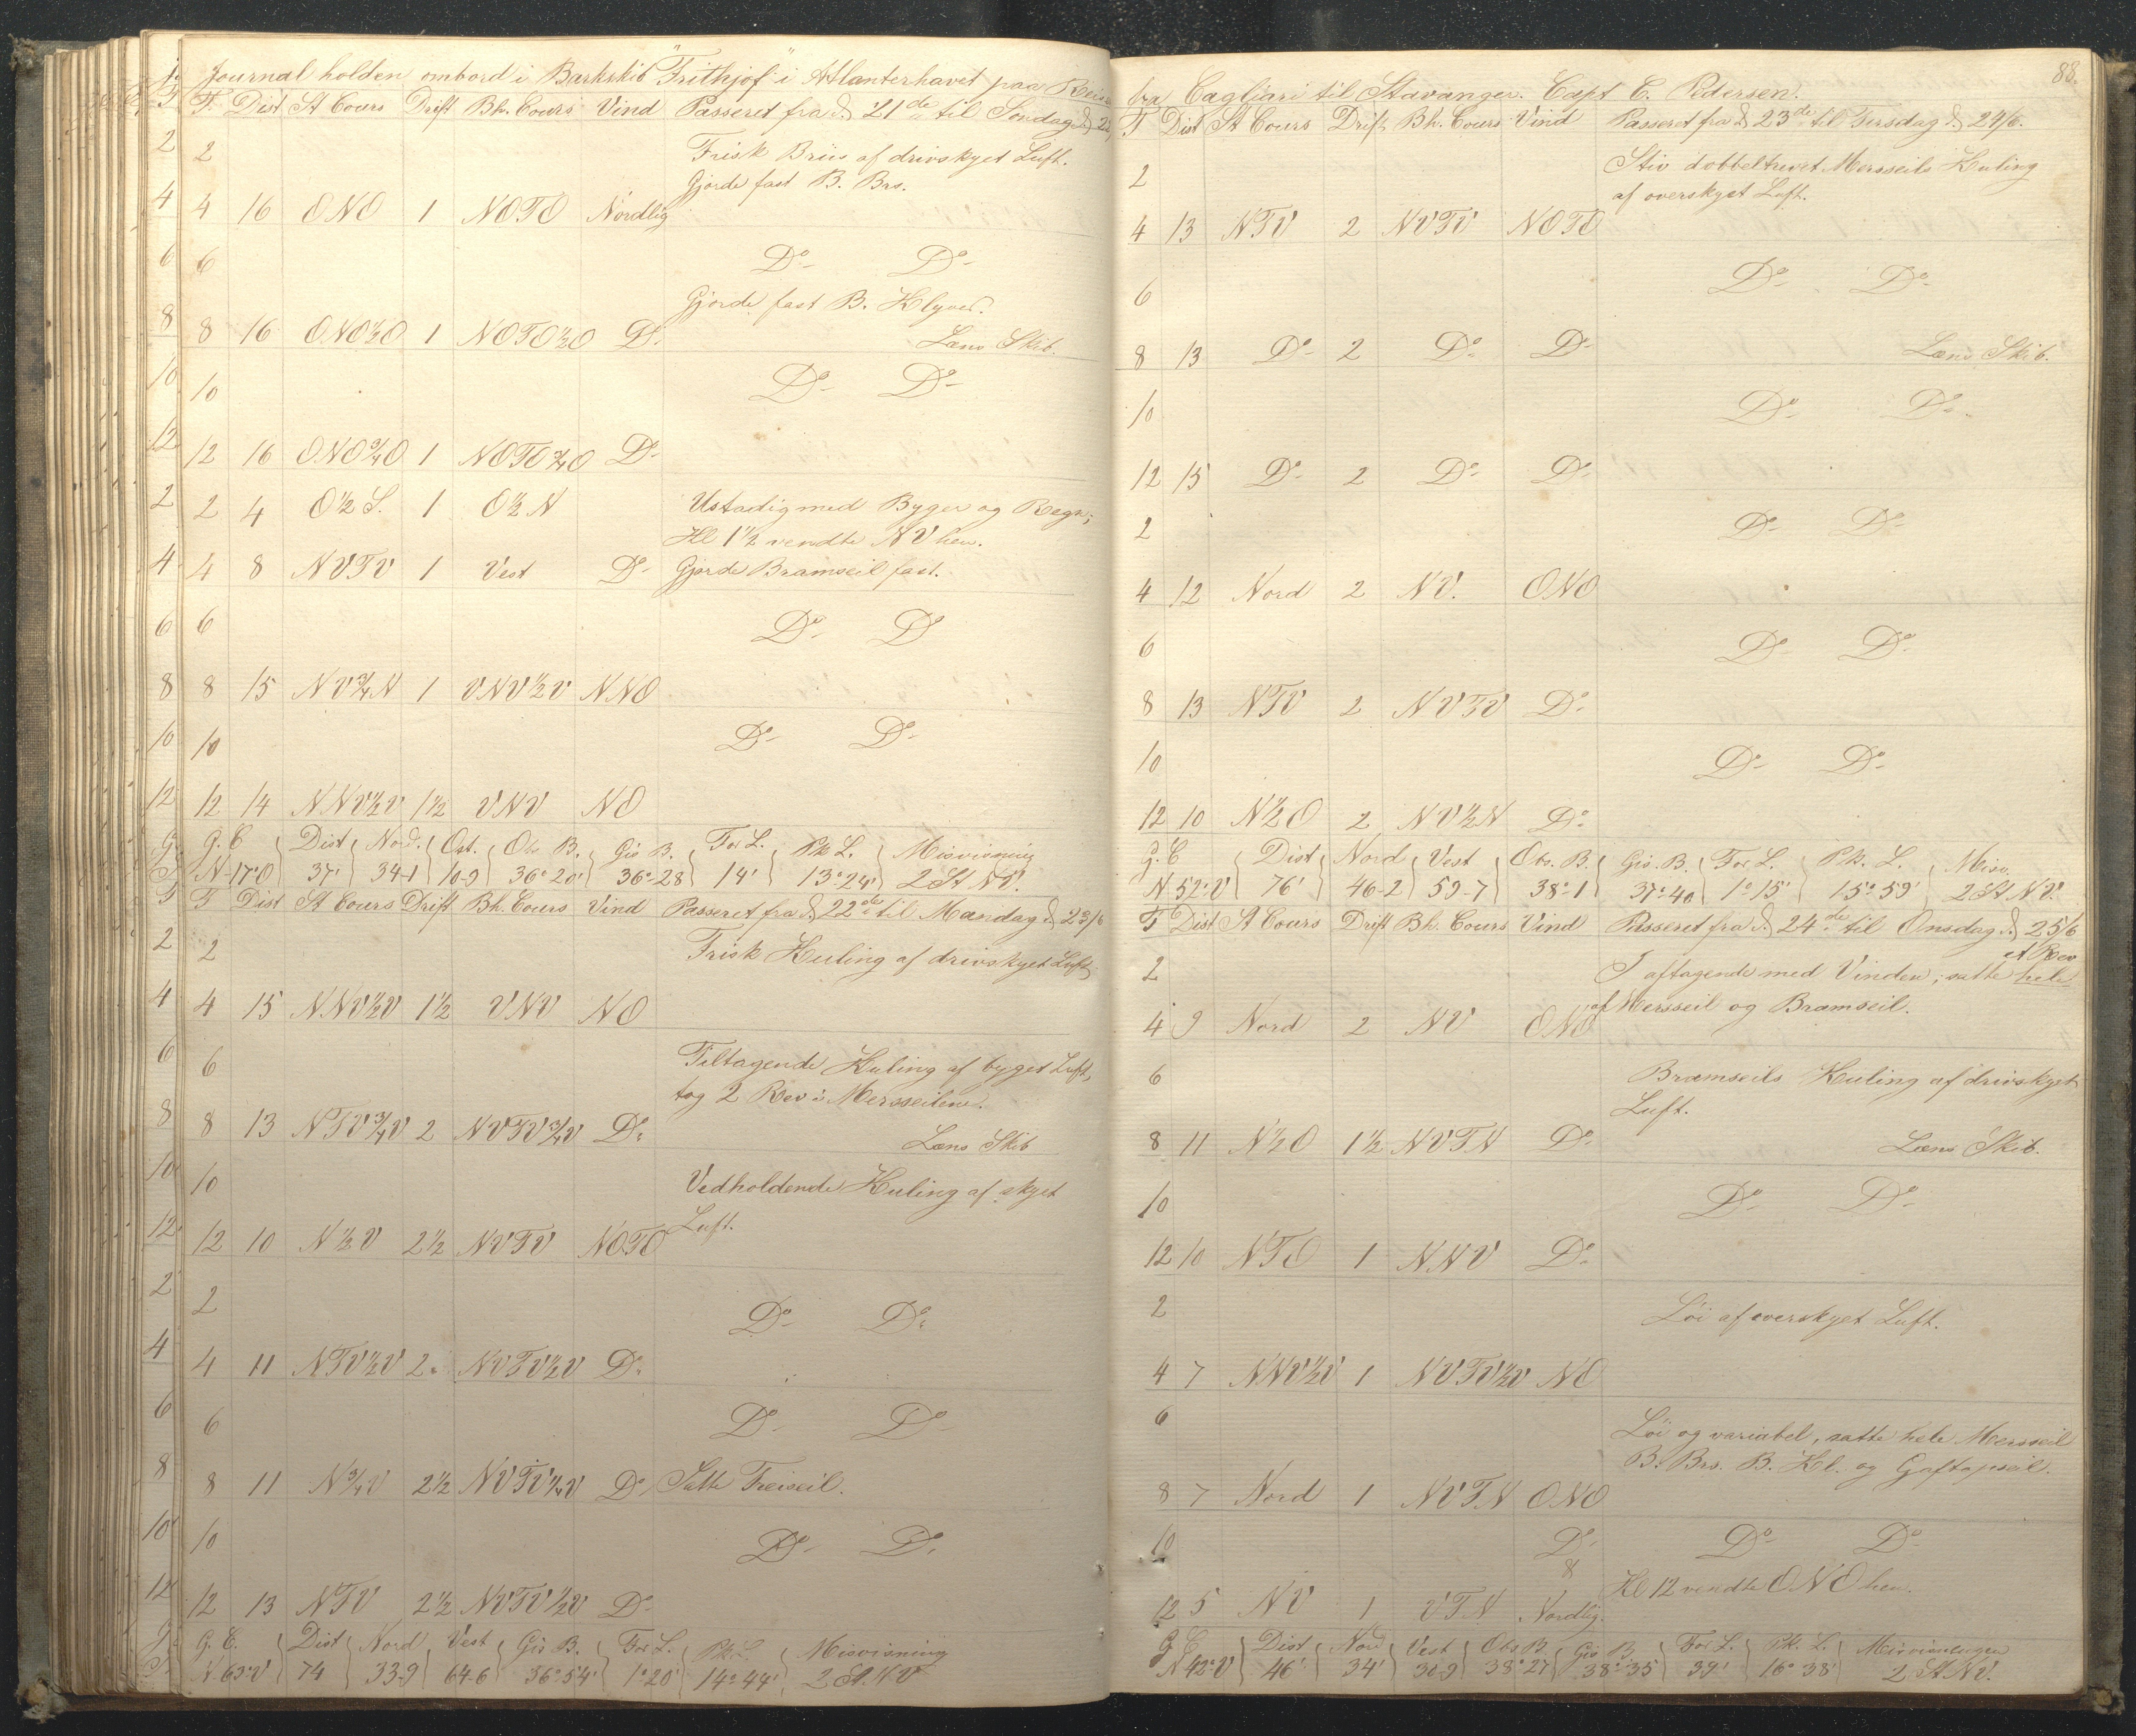 Journal holden ombord i Barkskib "Frithjof" i Atlanterhavet paa Reise
T. Dist St Cours Drift Bh. Cours Vind Passeret fra d. 21de til Søndag d. 22
2 Frisk Briis af drivskyet Luft.
Gjorde fast B. Brs.
4 16 ONO 1 NOTO Nordlig
6 Do- Do-
Gjorde fast B. Klyver.
8 16 ONO½O 1 NOTO½O Do- Læns Skib.
10 Do- Do-
12 16 ONO¾O 1 NOTO¾O Do-
2 4 O½S. 1 O½N Ustadig med Byger og Regn;
Kl 1½ vendte NV hen.
4 8 NVTV 1 Vest Do- Gjorde Bramseil fast.
6 Do- Do
8 15 NV¾N 1 VNV½V NNO
10 Do- Do-
12 14 NNV½V 1½ VNV NO
G. C Dist Nord. Ost. Obs B. Gis B. For L. Pk L. Misvisning
N-17°O 37' 34-1 10-9 36°20' 36°-28 14' 13°-24' 2 St NV.
T Dist St Cours Drift Bh. Cours Vind Passeret fra d. 22de til Mandag d. 23/6
2 Frisk Kuling af drivskyet Luft
4 15 NNV½V 1½ VNV NO
6 Tiltagende Kuling af byget Luft,
tog 2 Rev i Mersseilene.
8 13 NTV¾V 2 NVTV¾V Do- Læns Skib
10 Vedholdende Kuling af skyet
Luft.
12 10 N½V 2½ NVTV NOTO
2 Do- Do-
4 11 NTV½V 2 NVTV½V Do-
6 Do- Do-
8 11 N¾V 2½ NVTV¼V Do- Satte Treiseil.
10 Do- Do-
12 13 NTV 2½ NVTV½V Do-
G. C. Dist Nord Vest Gis B. For L. Pk L. Misvisning
N. 63°V 74 33-9 64-6 36°54' 1°20' 14°44' 2 St. NV
88.
fra Cagliari til Stavanger. Capt C. Pedersen.
T Dist St Cours Drift Bh. Cours Vind Passeret fra d 23de til Tirsdag d. 24/6.
2 Stiv dobbeltrevet Mersseils Kuling
af overskyet Luft.
4 13 NTV 2 NVTV NOTO
6 Do- Do-
8 13 Do- 2 Do- Do- Læns Skib.
10 Do- Do-
12 15 Do- 2 Do- Do-
2 Do- Do-
4 12 Nord 2 NV. ONO
6 Do- Do-
8 13 NTV 2 NVTV Do-
10 Do- Do-
12 10 N½O 2 NV½N Do-
G. C Dist Nord Vest Obs. B. Gis. B. For L. Pk. L. Misv.
N 52°V 76' 46-2 59-7 38°1 37°40 1°15' 15°59' 2 St NV.
T Dist St Cours Drift Bh. Cours Vind Passeret fra d. 24de til Onsdag d. 25/6
et Rev
2 I aftagende med Vinden; satte hele
af Mersseil og Bramseil.
4 9 Nord 2 NV ONO
6 Bramseils Kuling af drivskyet
Luft.
8 11 N½O 1½ NVTN Do- Læns Skib.
10 Do- Do-
12 10 NTO 1 NNV Do-
2 Løi af overskyet Luft.
4 7 NNV½V 1 NVTV½V NO
6 Løi og variabel, satte hele Mersseil
B. Brs. B. Kl. og Gaftopseil.
8 7 Nord 1 NVTN ONO
10 Do- Do- Do-
Kl 12 vendte ONO hen.
12 5 NV 1 VTN Nordlig.
G C Dist Nord Vest Obs B. Gis B. For L. Pk. L. Misvisningen
N 42°V 46' 34' 30-9 38°27 38°35 39' 16°38' 2 St NV.